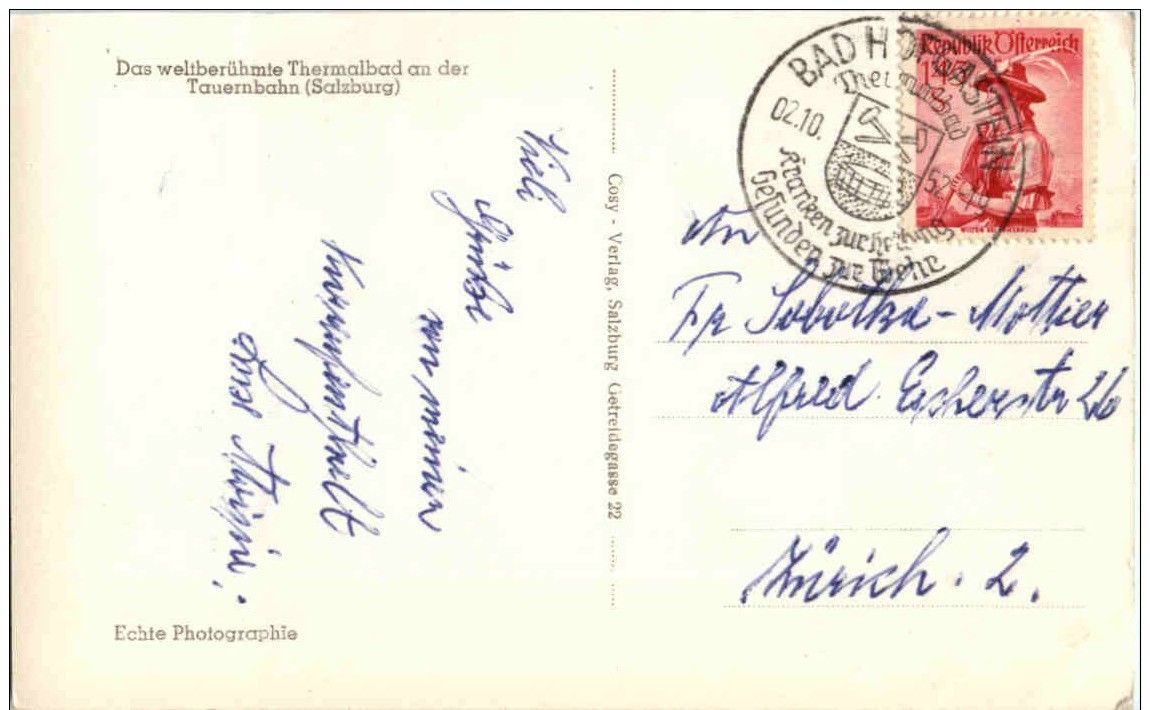 Das weltberühmte Thermalbad an der
Tauernbahn (Salzburg)
Viele
Grüsse
von meinem
Kuraufenthalt
Echte Photographie
Cosy - Verlag, Salzburg Getreidegasse 22
Republik Österreich
BAD HOFGASTEIN
Thermalbad
02.10.52
Kranken zur
Gesunden zur Wehr
An
Fr Sobotka - Mottier
Alfred Escherstr 26
Zürich. 2.